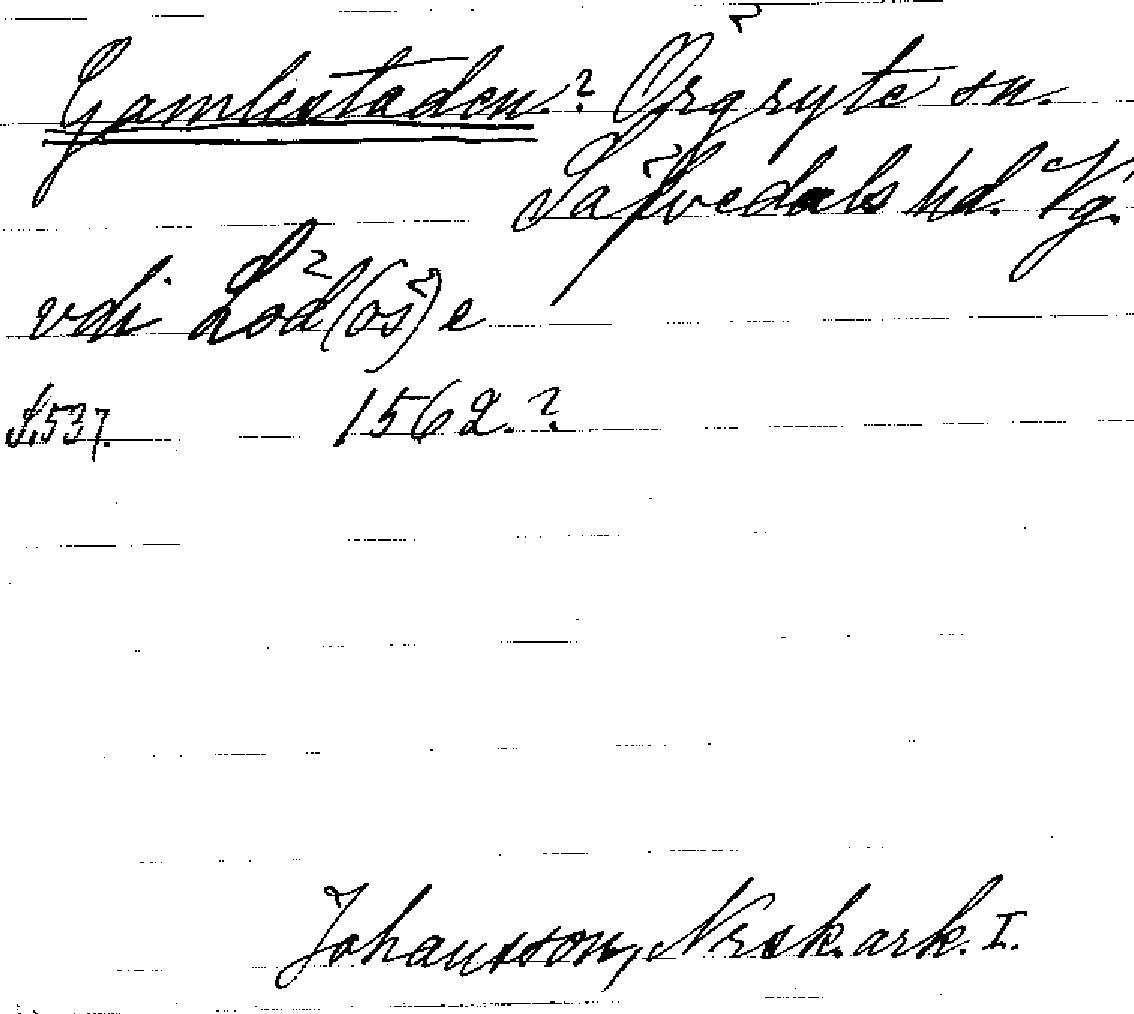 Gamlestaden? Örgryte sn.
Sävedals hd. Vg.
vdi Löd(ös)e
S. 537. 1562.?
Johansson, Nrsk. ark. I.